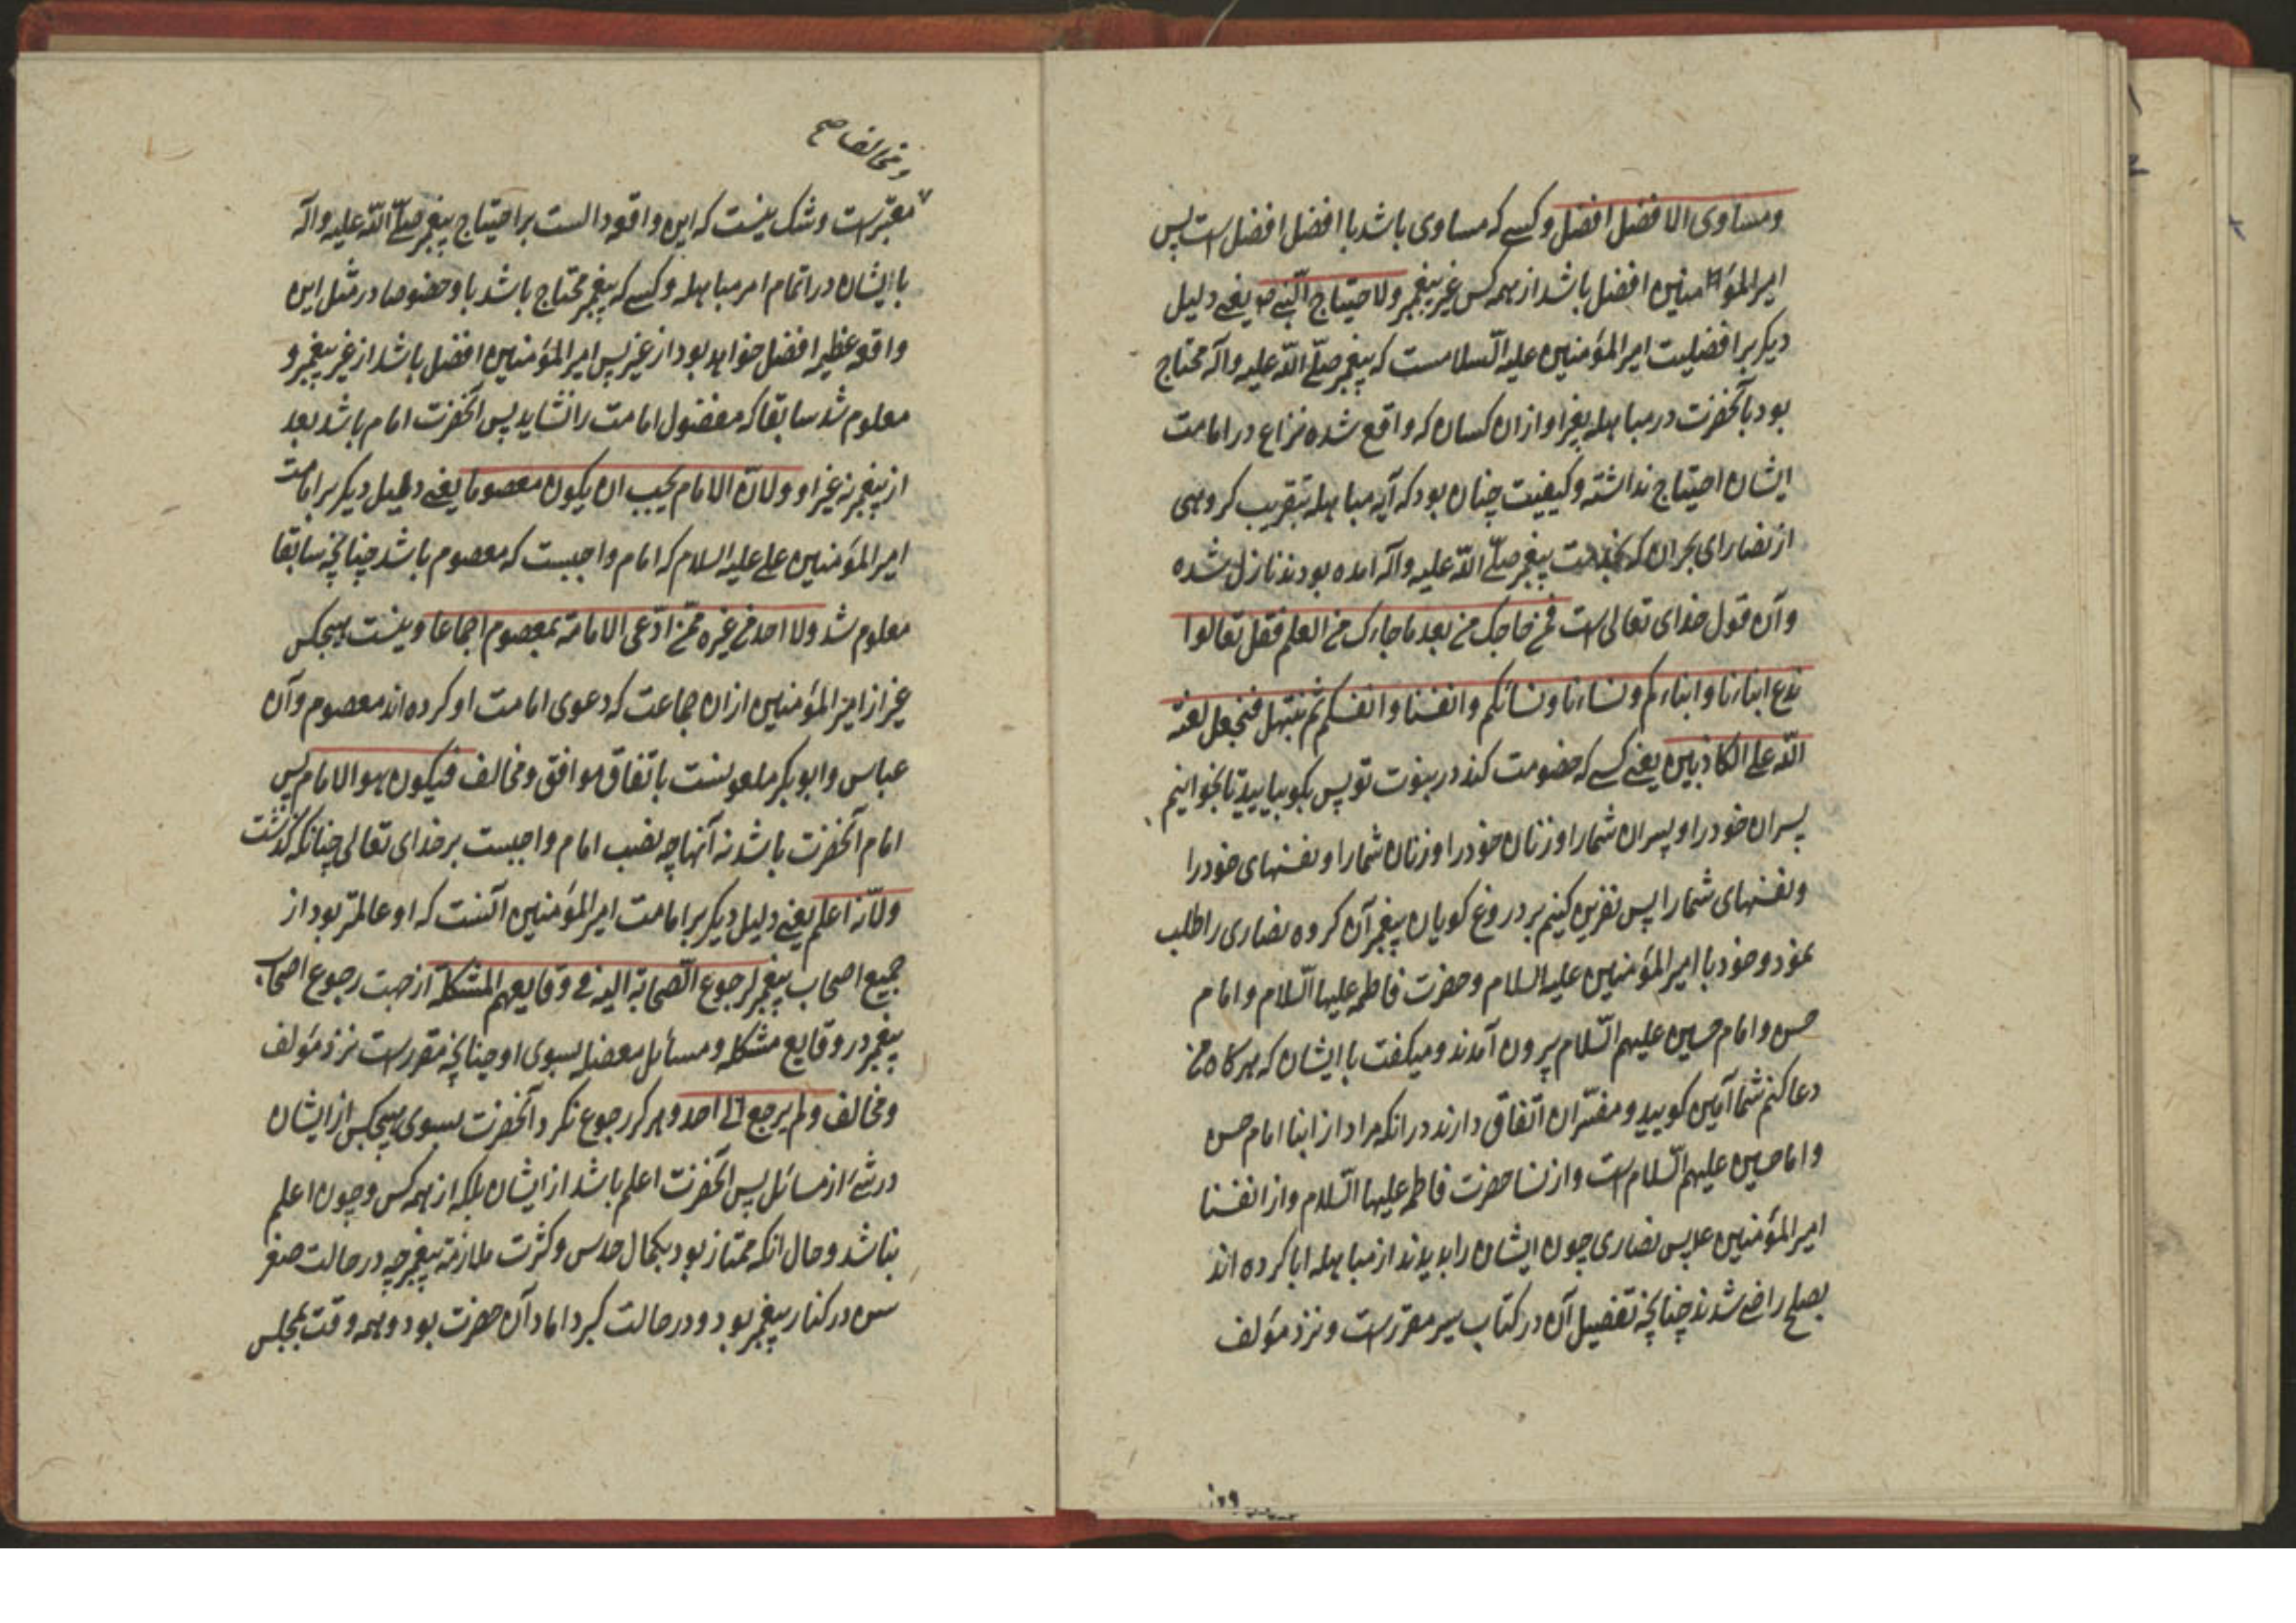 ومساوی الافضل افضل وکسے که مساوی باشد با افضل افضل است پس
امیر المؤمنین افضل باشد از همه کس غیر پیغمبر ولاحتیاج النبی ص یعنے دلیل
دیکر بر افضلیت امیر المؤمنین علیه السلامست که پیغمبر صلّے اللّه علیه وآله محتاج
بود بآنحضرت در مباهله بغیر او ازان کسان که واقع شده نزاع در امامت
ایشان احتیاج نداشته وکیفیت چنان بود که آیه مباهله بتقریب کروهی
از نصارای بحران که بخدمت پیغمبر صلّے اللّه علیه وآله امده بودند نازل شده
وآن قول خدای تعالی است فمن حاجک من بعد ما جاءک من العلم فقل تعالوا
ندع ابناءنا وابناءکم ونساءنا ونسائکم وانفسنا وانفسکم ثم نبتهل فنجعل لعنة
اللّه علے الکاذبین یعنے کسے که خصومت کند در نبوت تو پس بکو بیایید تا بخوانیم
پسران خود را وپسران شمارا وزنان خود را وزنان شمارا ونفسهای خود را
ونفسهای شمارا پس نفرین کنیم بر دروغ کویان پیغمبر آن کروه نصاری را طلب
نمود وخود با امیر المؤمنین علیه السلام وحضرت فاطمه علیها السّلام وامام
حسن وامام حسین علیهم السّلام برون آمدند ومیکفت با ایشان که هر کاه من
دعا کنم شما آمین کویید ومفسّران اتّفاق دارند در انکه مراد از ابنا امام حسن
واما حسین علیهم السّلام است واز نسا حضرت فاطمه علیها السّلام واز انفسنا
امیر المؤمنین علے پس نصاری چون ایشان را بدیدند از مباهله ابا کرده اند
بصلح راضے شدند چنانچه تفصیل آن در کتاب سیر مقرر است ونزد مؤلف
ومخالف صح
معتبر است وشک نیست که این واقعه دالست بر احتیاج پیغمبر صلّے اللّه علیه وآله
با ایشان در اتمام امر مباهله وکسے که پیغمبر محتاج باشد باو خصوصا در مثل این
واقعه عظیم افضل خواهد بود از غیر پس امیر المؤمنین افضل باشد از غیر پیغمبر و
معلوم شد سابقا که مفضول امامت را نشاید پس آنحضرت امام باشد بعد
از پیغمبر نه غیر او ولانّ الامام یجب ان یکون معصوما یعنے دلیل دیکر بر امامت
امیر المؤمنین علے علیه السلام که امام واجبست که معصوم باشد چنانچه سابقا
معلوم شد ولا احد من غیره ممّن ادّعی الامامة بمعصوم اجماعا ونیست هیچکس
غیر از امیر المؤمنین ازان جماعت که دعوی امامت او کرده اند معصوم وآن
عباس وابو بکر باتفاق موافق ومخالف فیکون هو الامام پس
امام آنحضرت باشد نه آنها چه نصب امام واجبست بر خدای تعالی چنانکه گذشت
ولانّه اعلم یعنے دلیل دیکر بر امامت امیر المؤمنین آنست که او عالمتر بود از
جمیع اصحاب پیغمبر لرجوع الصّحابة الیه فے وقایعهم المشکلة از جهت رجوع اصحاب
پیغمبر در وقایع مشکله ومسائل معضله بسوی او چنانچه مقرر است نزد مؤلف
ومخالف ولم یرجع الی احد وهرکز رجوع نکرد آنحضرت بسوی هیچکس از ایشان
در شیء از مسائل پس آنحضرت اعلم باشد از ایشان بلکه از همه کس وچون اعلم
نباشد وحال انکه ممتاز بود بکمال حدس وکثرت ملازمة پیغمبر چه در حالت صغر
سن در کنار پیغمبر بود ودر حالت کبر داماد آن حضرت بود وهمه وقت بمجلس